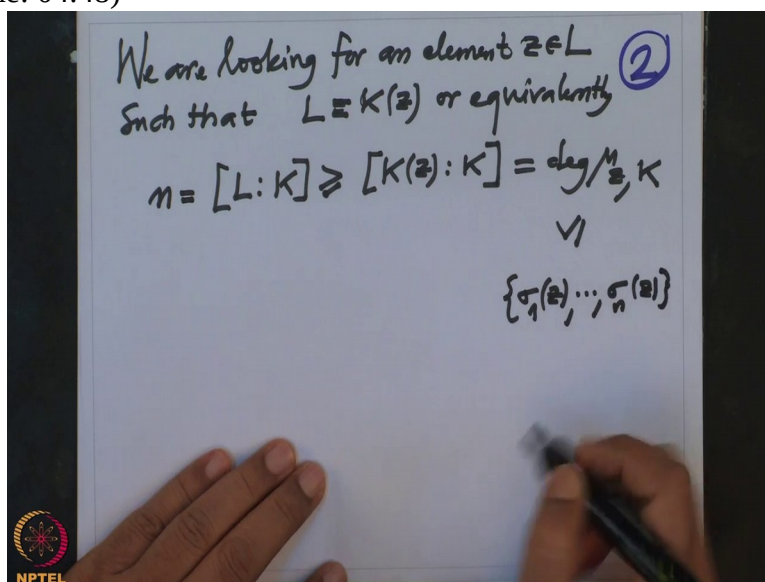 We are looking for an element z∈L
Such that L = K(z) or equivalently
②
n = [L:K] ⩾ [K(z):K] = deg μ_{z,K}
\/|
{σ_1(z), ..., σ_n(z)}
NPTEL